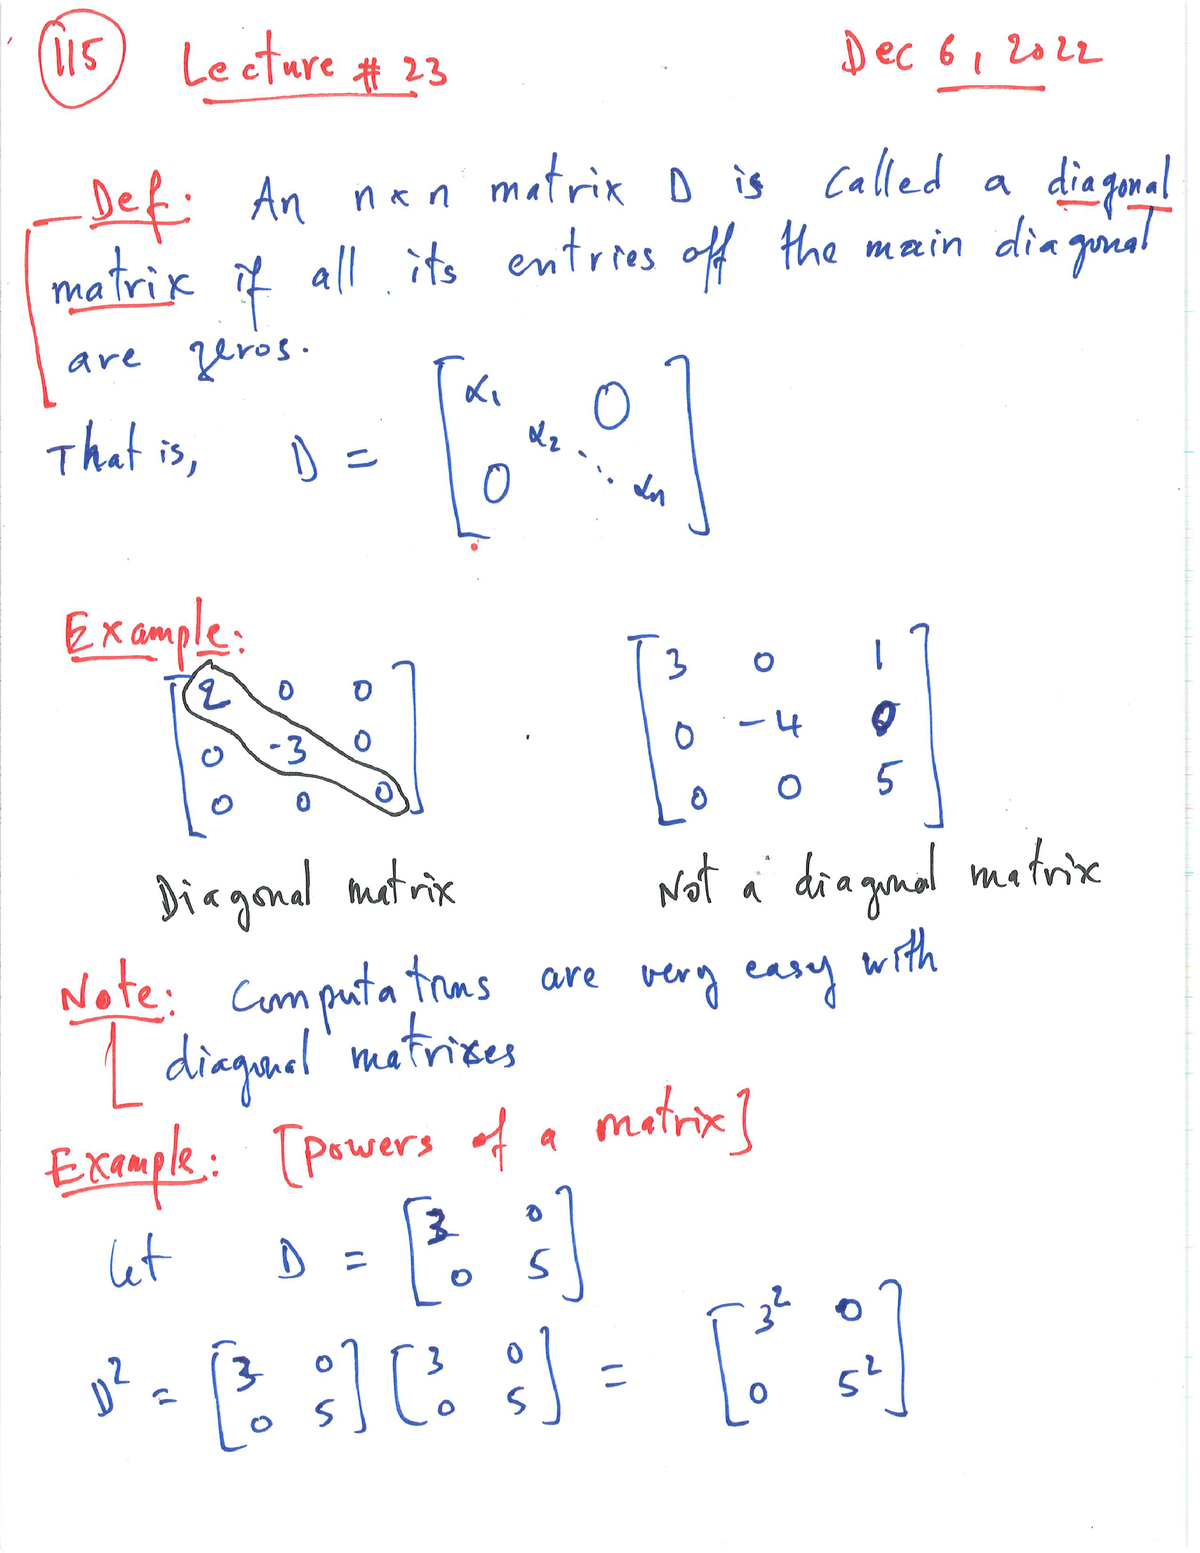 115 Lecture # 23 Dec 6, 2022
Def: An n×n matrix D is called a diagonal
matrix if all its entries off the main diagonal
are zeros.
That is, D = [α₁ 0 α₂ ⋱ 0 αₙ]
Example:
[2 0 0 3 0 1
0 -3 0 0 -4 0
0 0 0] 0 0 5
Diagonal matrix Not a diagonal matrix
Note: Computations are very easy with
diagonal matrixes
Example: [powers of a matrix]
let D = [3 0
0 5]
D² = [3 0 [3 0 = [3² 0
0 5] 0 5] 0 5²]